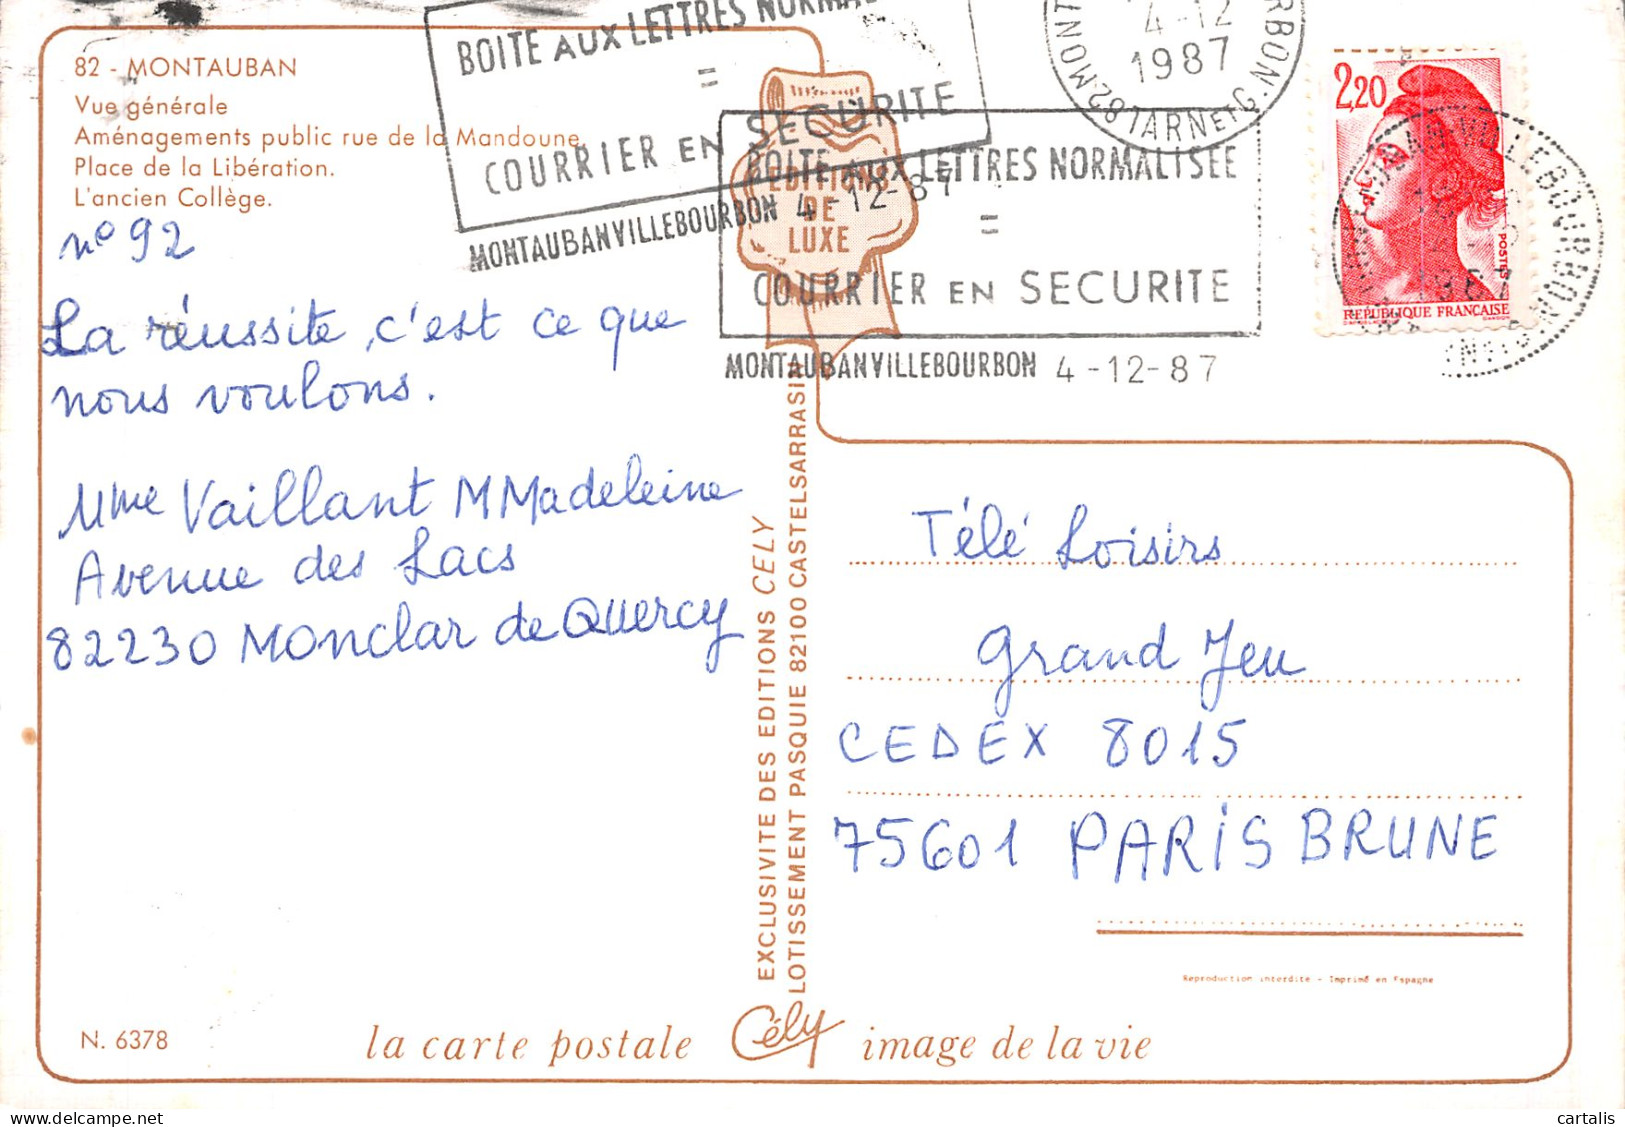 82 - MONTAUBAN
Vue générale
Aménagements public rue de la Mandoune,
Place de la Libération.
L'ancien Collège.
n° 92
La réussite, c'est ce que
nous voulons.
Mme Vaillant M Madeleine
Avenue des Lacs
82230 Monclar de Quercy
BOITE AUX LETTRES
=
COURRIER EN SECURITE
MONTAUBANVILLEBOURBON 4-12-87
4-12
1987
82 TARN ET G.
EDITIONS
DE
LUXE
BOITE AUX LETTRES NORMALISEE
=
COURRIER EN SECURITE
MONTAUBANVILLEBOURBON 4-12-87
2,20
POSTES
REPUBLIQUE FRANCAISE
EXCLUSIVITE DES EDITIONS CELY
LOTISSEMENT PASQUIE 82100 CASTELSARRASIN
Télé Loisirs
Grand Jeu
CEDEX 8015
75601 PARIS BRUNE
Reproduction interdite - Imprimé en Espagne
N. 6378
la carte postale Cély image de la vie
cartalis